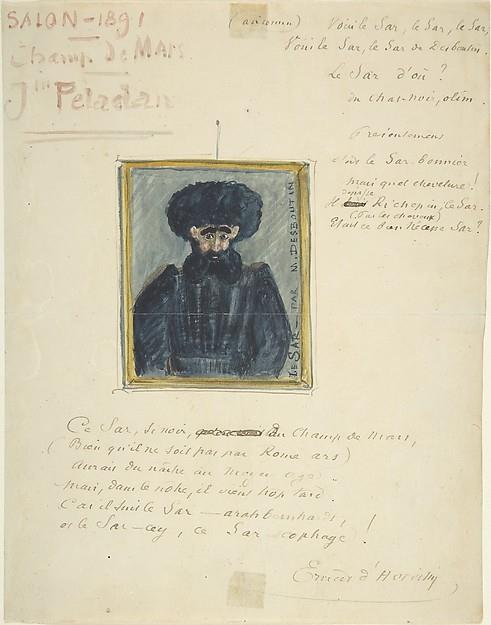 SALON - 1891
Champ de Mars
J^in Peladan
(air connu)
Voici le Sar, le Sar, le Sar,
Voici le Sar, le Sar de Desboutin.
Le Sar d'où ?
du Chat-noir, olim.
Présentement
le Sar bonnier
mais quel chevelure !
Richepin, le Sar.
(par les cheveux)
Était-ce Sar ?
LE SAR - PAR M. DESBOUTIN
Ce Sar, si noir, du Champ de Mars,
(Bien qu'il ne soit pas par Rome ars)
Aurait du naître au moyen âge.
mais, dans le nôtre, il vient trop tard.
Car il suit le Sar — arahbernhardt,
et le Sar-cey, ce Sar cophage !
Ernest d'Hervilly